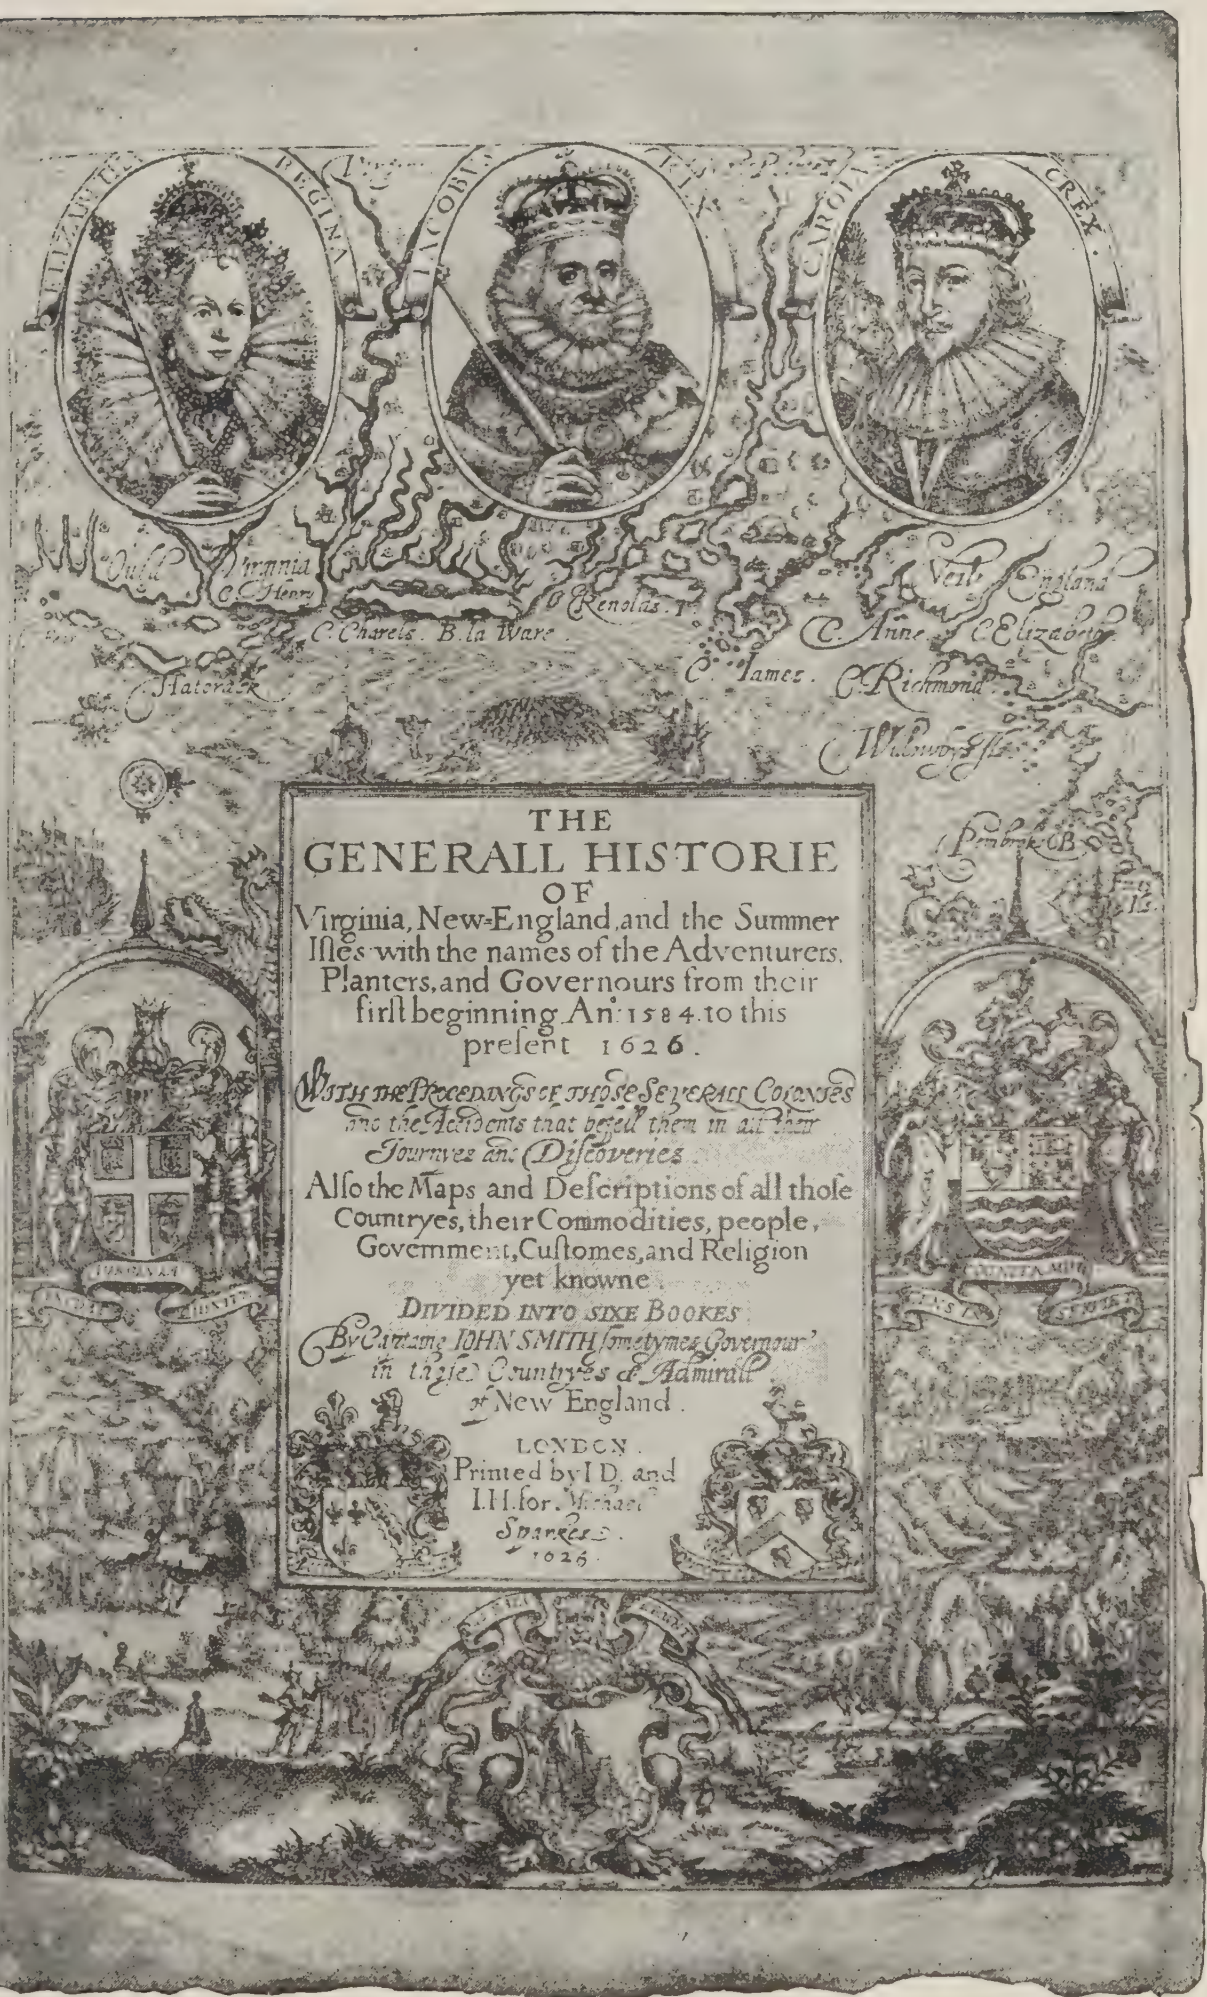 ELIZABETHA REGINA
IACOBUS REX
CAROLUS REX.
Ould Virginia
C. Henry
C. Charels. B. la Ware.
Renolds.
New England
C. Anne C Elizabeth
C. Iames.
C. Richmond
Hatorask
Pembrok CB
THE
GENERALL HISTORIE
OF
Virginia, New=England, and the Summer
Iſles with the names of the Adventurers,
Planters, and Governours from their
firſt beginning An: 1584. to this
preſent 1626.
WITH THE PROCEDINGS OF THOSE SEVERALL COLONIES
and the Accidents that befell them in all their
Journyes and Diſcoveries.
Alſo the Maps and Deſcriptions of all thoſe
Countryes, their Commodities, people,
Government, Cuſtomes, and Religion
yet knowne.
DIVIDED INTO SIXE BOOKES.
By Captaine IOHN SMITH ſometymes Governour
in thoſe Countryes & Admirall
of New England.
LONDON.
Printed by I D. and
I.H. for Michael
Sparkes.
1626.